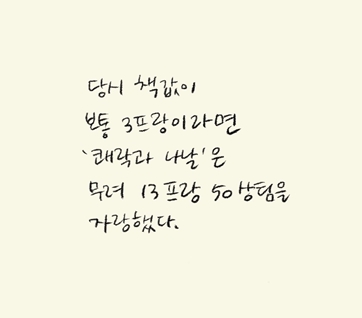 당시 책값이
보통 3프랑이라면
'쾌락과 나날'은
무려 13프랑 50상팀을
자랑했다.